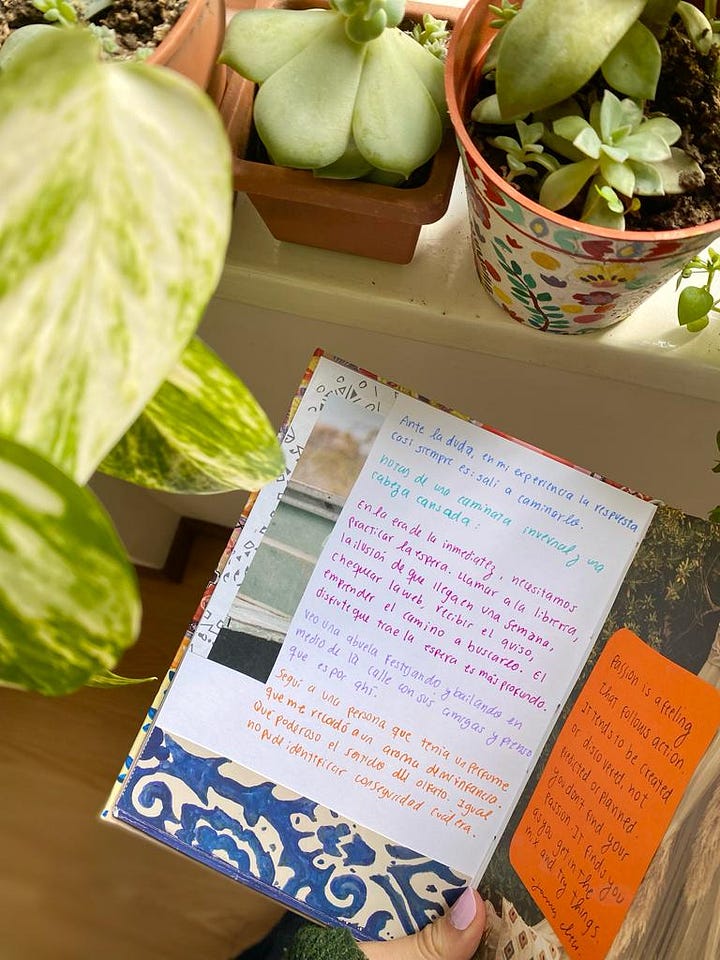 Ante la duda, en mi experiencia la respuesta
casi siempre es: salí a caminarlo.
notas de una caminata invernal y una
cabeza cansada:
En la era de la inmediatez, necesitamos
practicar la espera. Llamar a la librería,
la ilusión de que llega en una semana,
chequear la web, recibir el aviso,
emprender el camino a buscarlo. El
disfrute que trae la espera es más profundo.
Veo una abuela festejando y bailando en
medio de la calle con sus amigas y pienso
que es por ahí.
Seguí a una persona que tenía un perfume
que me recordó a un aroma de mi infancia.
Qué poderoso el sentido del olfato. Igual
no pude identificar con seguridad cuál era.
Passion is a feeling
that follows action.
It tends to be created
or discovered, not
predicted or planned.
You don't find your
passion. It finds you
as you get in the
mix and try things.
- James Clear